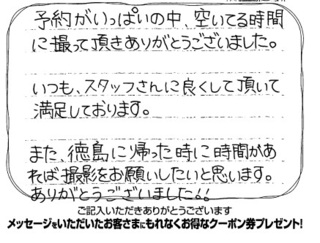 予約がいっぱいの中、空いてる時間
に撮って頂きありがとうございました。
いつも、スタッフさんに良くして頂いて
満足しております。
また、徳島に帰った時に時間があ
れば撮影をお願いしたいと思います。
ありがとうございました!!
ご記入いただきありがとうございます
メッセージをいただいたお客さまにもれなくお得なクーポン券プレゼント!